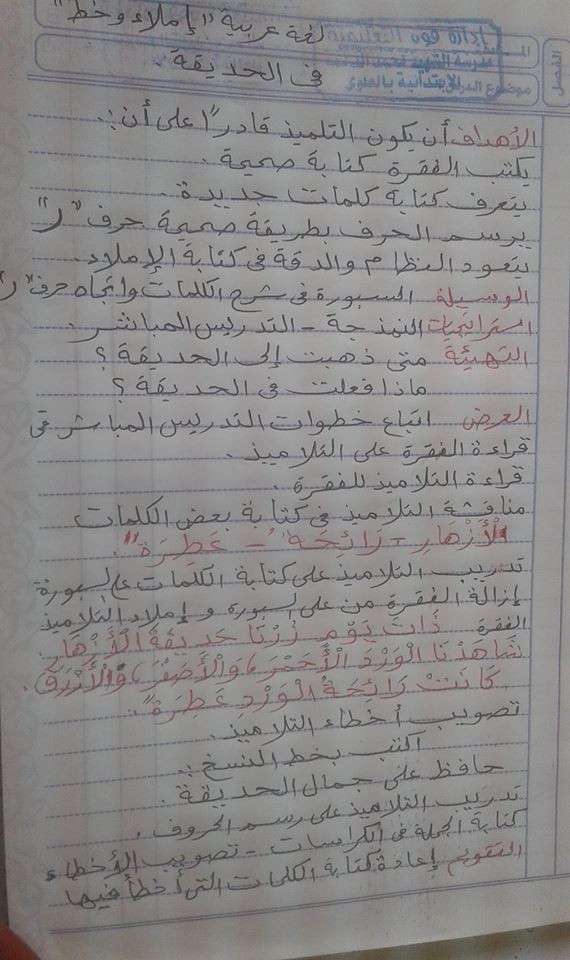 لغة عربية "إملاء وخط"
إدارة قوه التعليمية
المادة
الفصل
موضوع الدرس
الابتدائية بالعلوي
فى الحديقة
الأهداف أن يكون التلميذ قادرًا على أن:
يكتب الفقرة كتابة صحيحة.
يتعرف كتابة كلمات جديدة.
يرسم الحرف بطريقة صحيحة حرف "ر"
يتعود النظام والدقة فى كتابة الإملاء.
الوسيلة السبورة فى شرح الكلمات واتجاه حرف "ر"
استراتيجيات النمذجة - التدريس المباشر.
التهيئة متى ذهبت إلى الحديقة؟
ماذا فعلت فى الحديقة؟
العرض اتباع خطوات التدريس المباشر فى
قراءة الفقرة على التلاميذ.
قراءة التلاميذ للفقرة.
مناقشة التلاميذ فى كتابة بعض الكلمات
"الْأَزْهَارِ - رَائِحَةُ - عَطِرَة".
تدريب التلاميذ على كتابة الكلمات ع السبورة
إزالة الفقرة من على السبورة و إملاء التلاميذ
الفقرة ذَاتَ يَوْمٍ زُرْنَا حَدِيقَةَ الْأَزْهَارِ.
شَاهَدْنَا الْوَرْدَ الْأَحْمَرَ، وَالْأَصْفَرَ، وَالْأَزْرَقَ.
كَانَتْ رَائِحَةُ الْوَرْدِ عَطِرَةً".
تصويب أخطاء التلاميذ.
اكتب بخط النسخ:
حافظ على جمال الحديقة.
تدريب التلاميذ على رسم الحروف.
كتابة الجملة فى الكراسات - تصويب الأخطاء
التقويم إعادة كتابة الكلمات التى أخطأ فيها